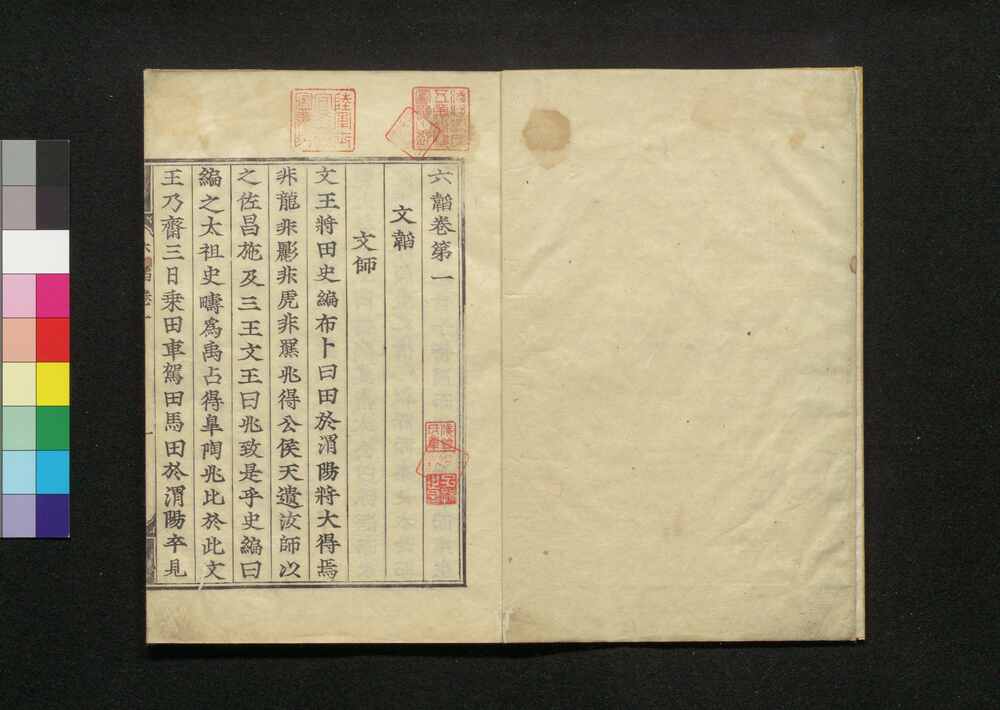 六韜卷第一
文韜
文師
文王將田史編布卜曰田於渭陽將大得焉
非龍非彲非虎非羆兆得公侯天遺汝師以
之佐昌施及三王文王曰兆致是乎史編曰
編之太祖史疇爲禹占得皐陶兆比於此文
王乃齋三日乗田車駕田馬田於渭陽卒見